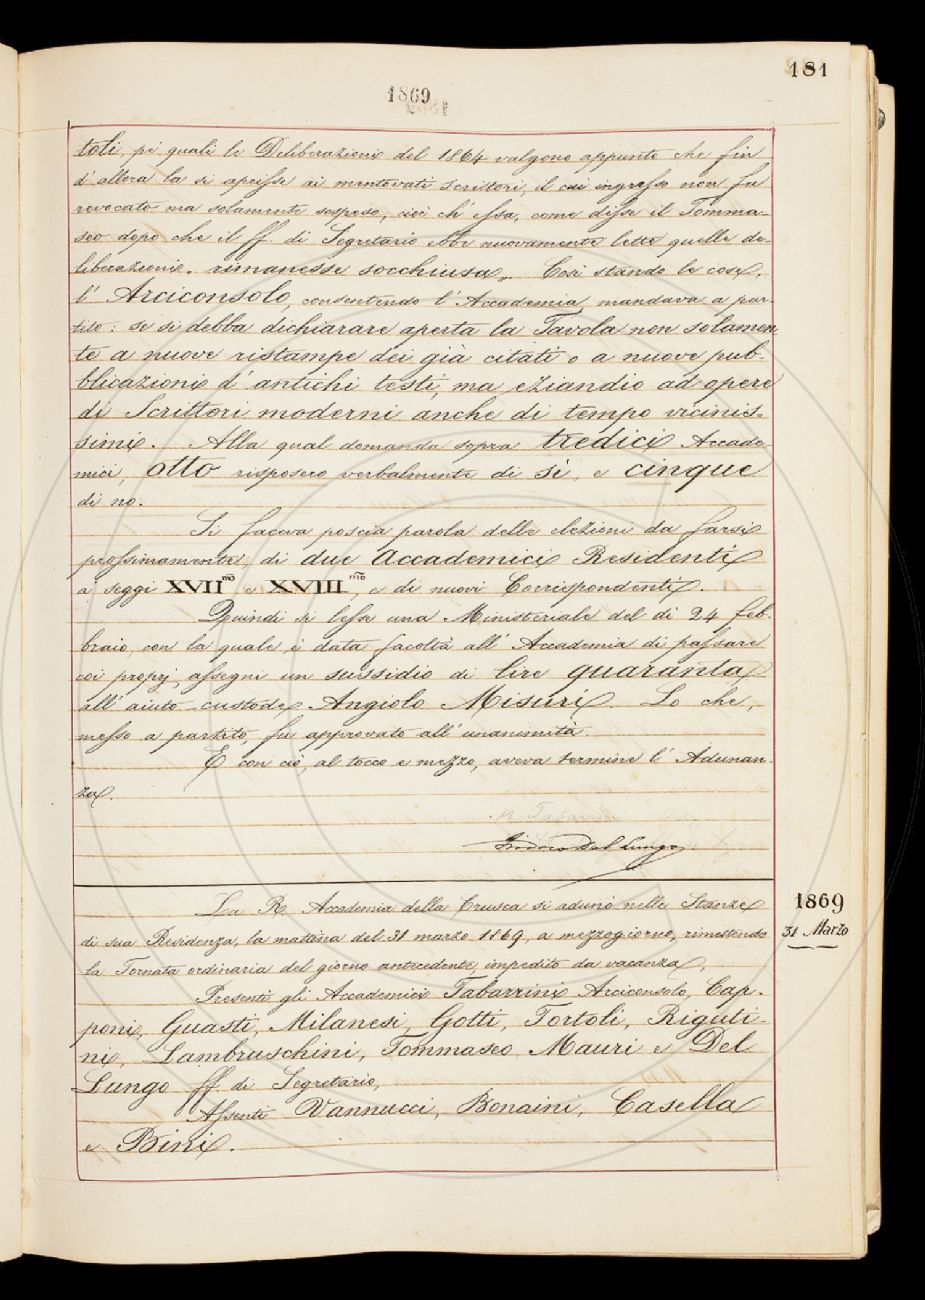 181
1869
toli, pe' quali le Deliberazioni del 1864 valgono appunto che fin
d'allora la si aprisse ai mentovati scrittori, il cui ingresso non fu
revocato ma solamente sospeso, cioè ch'essa, come disse il Tomma-
seo dopo che il ff. di Segretario ebbe nuovamente lette quelle de-
liberazioni, rimanesse socchiusa„. Così stando le cose,
l'Arciconsolo, consentendo l'Accademia mandava a par-
tito: se si debba dichiarare aperta la Tavola non solamen-
te a nuove ristampe dei già citati o a nuove pub-
blicazioni d'antichi testi, ma eziandio ad opere
di Scrittori moderni anche di tempo vicinis-
simi. Alla qual domanda sopra tredici Accade-
mici, otto risposero verbalmente di sì, e cinque
di no.
Si faceva poscia parola delle elezioni da farsi
prossimamente, di due Accademici Residenti
a' seggi XVIImo e XVIIImo, e di nuovi Corrispondenti.
Quindi si lesse una Ministeriale del dì 24 feb-
braio, con la quale è data facoltà all'Accademia di passare
coi propj assegni un sussidio di lire quaranta
all'aiuto custode Angiolo Misuri. Lo che,
messo a partito, fu approvato all'unanimità.
E con ciò, al tocco e mezzo, aveva termine l'Adunan-
za.
M. Tabarrini
Isidoro Del Lungo
1869
31 Marzo
La R. Accademia della Crusca si adunò nelle Stanze
di sua Residenza, la mattina del 31 marzo 1869, a mezzogiorno, rimettendo
la Tornata ordinaria del giorno antecedente, impedito da vacanza.
Presenti gli Accademici Tabarrini Arciconsolo, Cap-
poni, Guasti, Milanesi, Gotti, Tortoli, Riguti-
ni, Lambruschini, Tommaseo, Mauri e Del
Lungo ff. di Segretario,
Assenti Vannucci, Bonaini, Casella
e Bini.